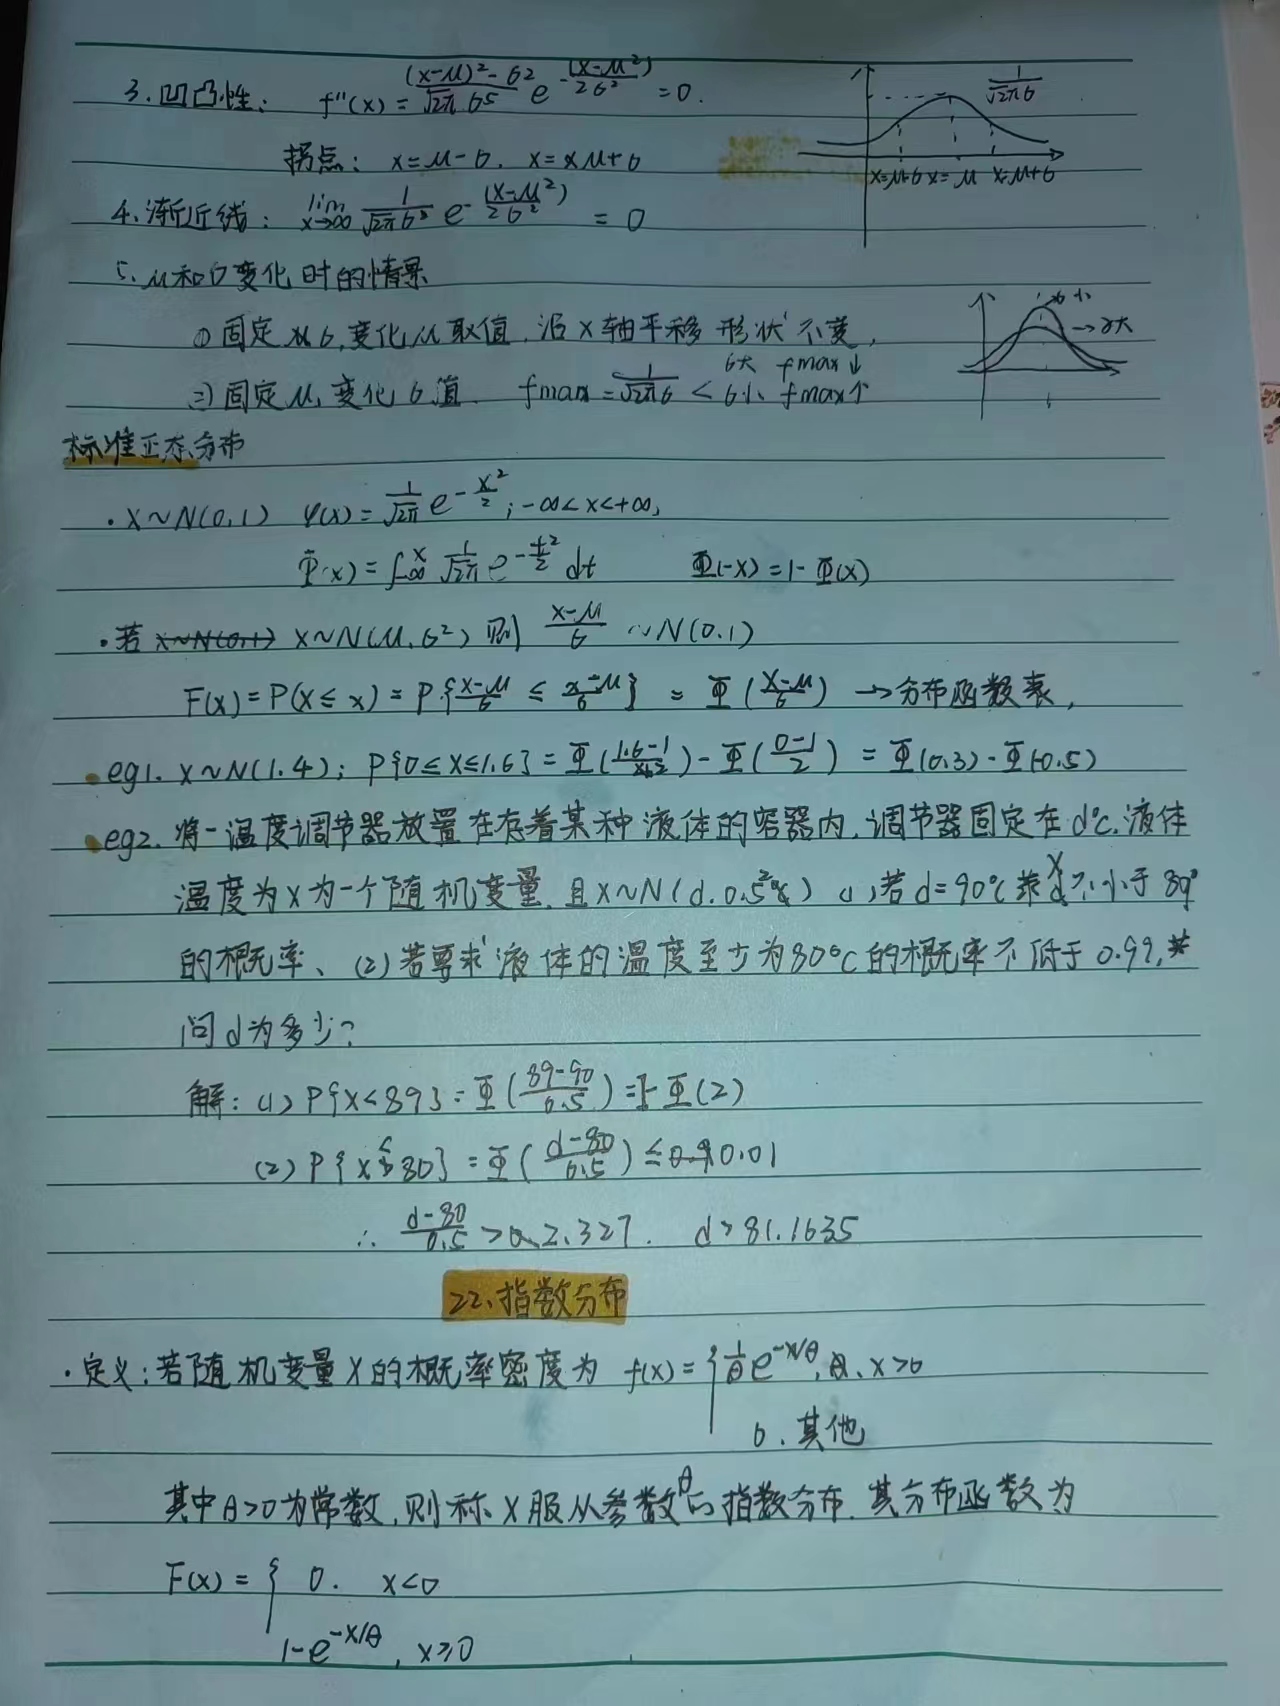 3.凹凸性： f''(x) = \frac{(x-μ)²-σ²}{\sqrt{2π} σ⁵} e^{-\frac{(x-μ²)}{2σ²}} = 0.
\frac{1}{\sqrt{2π}σ}
拐点： x=μ-σ. x=μ+σ
x=μ-σ x=μ x=μ+σ
4.渐近线： \lim_{x→∞} \frac{1}{\sqrt{2π}σ³} e^{-\frac{(x-μ²)}{2σ²}} = 0
5.μ和σ变化时的情景
①固定σ,变化μ取值,沿x轴平移 形状不变,
σ小
→σ大
σ大 fmax↓
②固定μ,变化σ值. fmax=\frac{1}{\sqrt{2π}σ} < σ小 fmax↑
标准正态分布
·X~N(0,1) φ(x)=\frac{1}{\sqrt{2π}} e^{-\frac{x²}{2}}; -∞<x<+∞,
Φ(x)=∫_{-∞}^{x} \frac{1}{\sqrt{2π}} e^{-\frac{t²}{2}} dt Φ(-x)=1-Φ(x)
·若 X~N(μ,σ²) 则 \frac{x-μ}{σ} ~N(0,1)
F(x)=P(X≤x)=P{\frac{x-μ}{σ} ≤ \frac{x-μ}{σ}} = Φ(\frac{x-μ}{σ}) →分布函数表,
·eg1. X~N(1.4); P{0≤X≤1.6}=Φ(\frac{1.6-1}{2})-Φ(\frac{0-1}{2})=Φ(0.3)-Φ(-0.5)
·eg2. 将一温度调节器放置在存着某种液体的容器内,调节器固定在d℃.液体
温度为X为一个随机变量,且X~N(d,0.5²) (1)若d=90℃ 求X不小于89°
的概率、(2)若要求液体的温度至少为80℃的概率不低于0.99,
问d为多少？
解：(1) P{X<89}=Φ(\frac{89-90}{0.5})=1-Φ(2)
(2) P{X<80}=Φ(\frac{d-80}{0.5})≤0.01
∴ \frac{d-80}{0.5}>2.327. d>81.1635
22、指数分布
·定义：若随机变量X的概率密度为 f(x)={\frac{1}{θ}e^{-x/θ}, x>0
0、其他
其中θ>0为常数,则称X服从参数θ的指数分布.其分布函数为
F(x)={ 0. x<0
1-e^{-x/θ}, x≥0